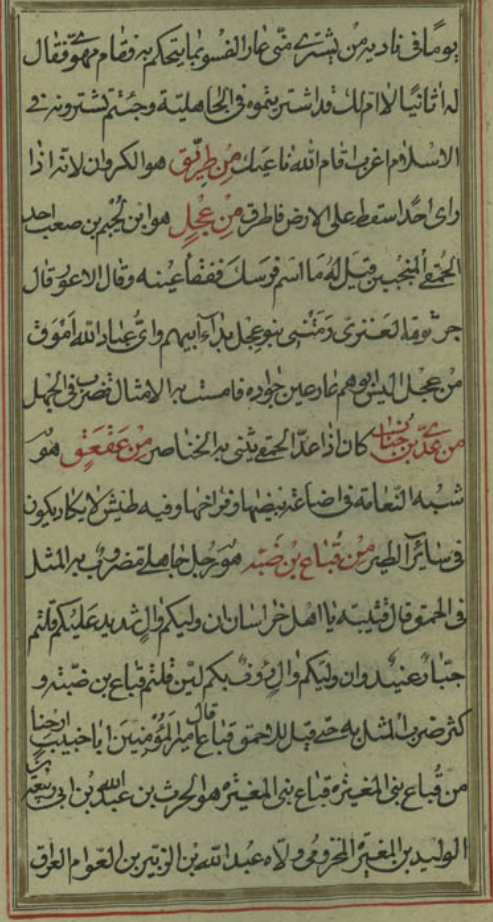 يومًا في ناديه من يشترى منّى عار الفسو بما يتحكم به فقام مهوّ فقال
له اثانيًا لا امّ لك قد اشتريتموه في الجاهلية وجئتم تشترونه في
الاسلام اغرب اقام الله ناعيك من طريق هو الكروان لانه اذا
راى احدًا سقط على الارض فاطرق من عجل هو ابن لجيم بن صعب احد
الحمقى المنجبين قيل له ما اسم فرسك ففقأ عينه وقال الاعور قال
جرثومة العنزى رمتنى بنو عجل بداء ابيهم واىّ عباد الله انوق
من عجل اليس ابوهم عار عين جواده فامست به الامثال تضرب في الجهل
من عدىّ بن جناب كان اذا عدّ الحمقى يثنى به الخناصر من عقعق هو
شبه النعامة في اضاعته بيضها وفراخها وفيه طيش لا يكاد يكون
في سائر الطير من قباع بن ضبّة هو رجل جاهلى مضروب به المثل
في الحمق قال قتيبة يا اهل خراسان ان وليكم وال شديد عليكم قلتم
جبّار عنيد وان وليكم وال رءوف بكم قلتم قباع بن ضبّة و
كثر ضرب المثل به حتى قيل للاحمق قباع قال امير المؤمنين ابا خبيب ارحنا
من قباع بنى المغيرة قباع بنى المغيرة هو الحرث بن عبد الله بن ابى ربيعة
الوليد بن المغيرة المخزومى ولاه عبد الله بن الزبير بن العوام العراق